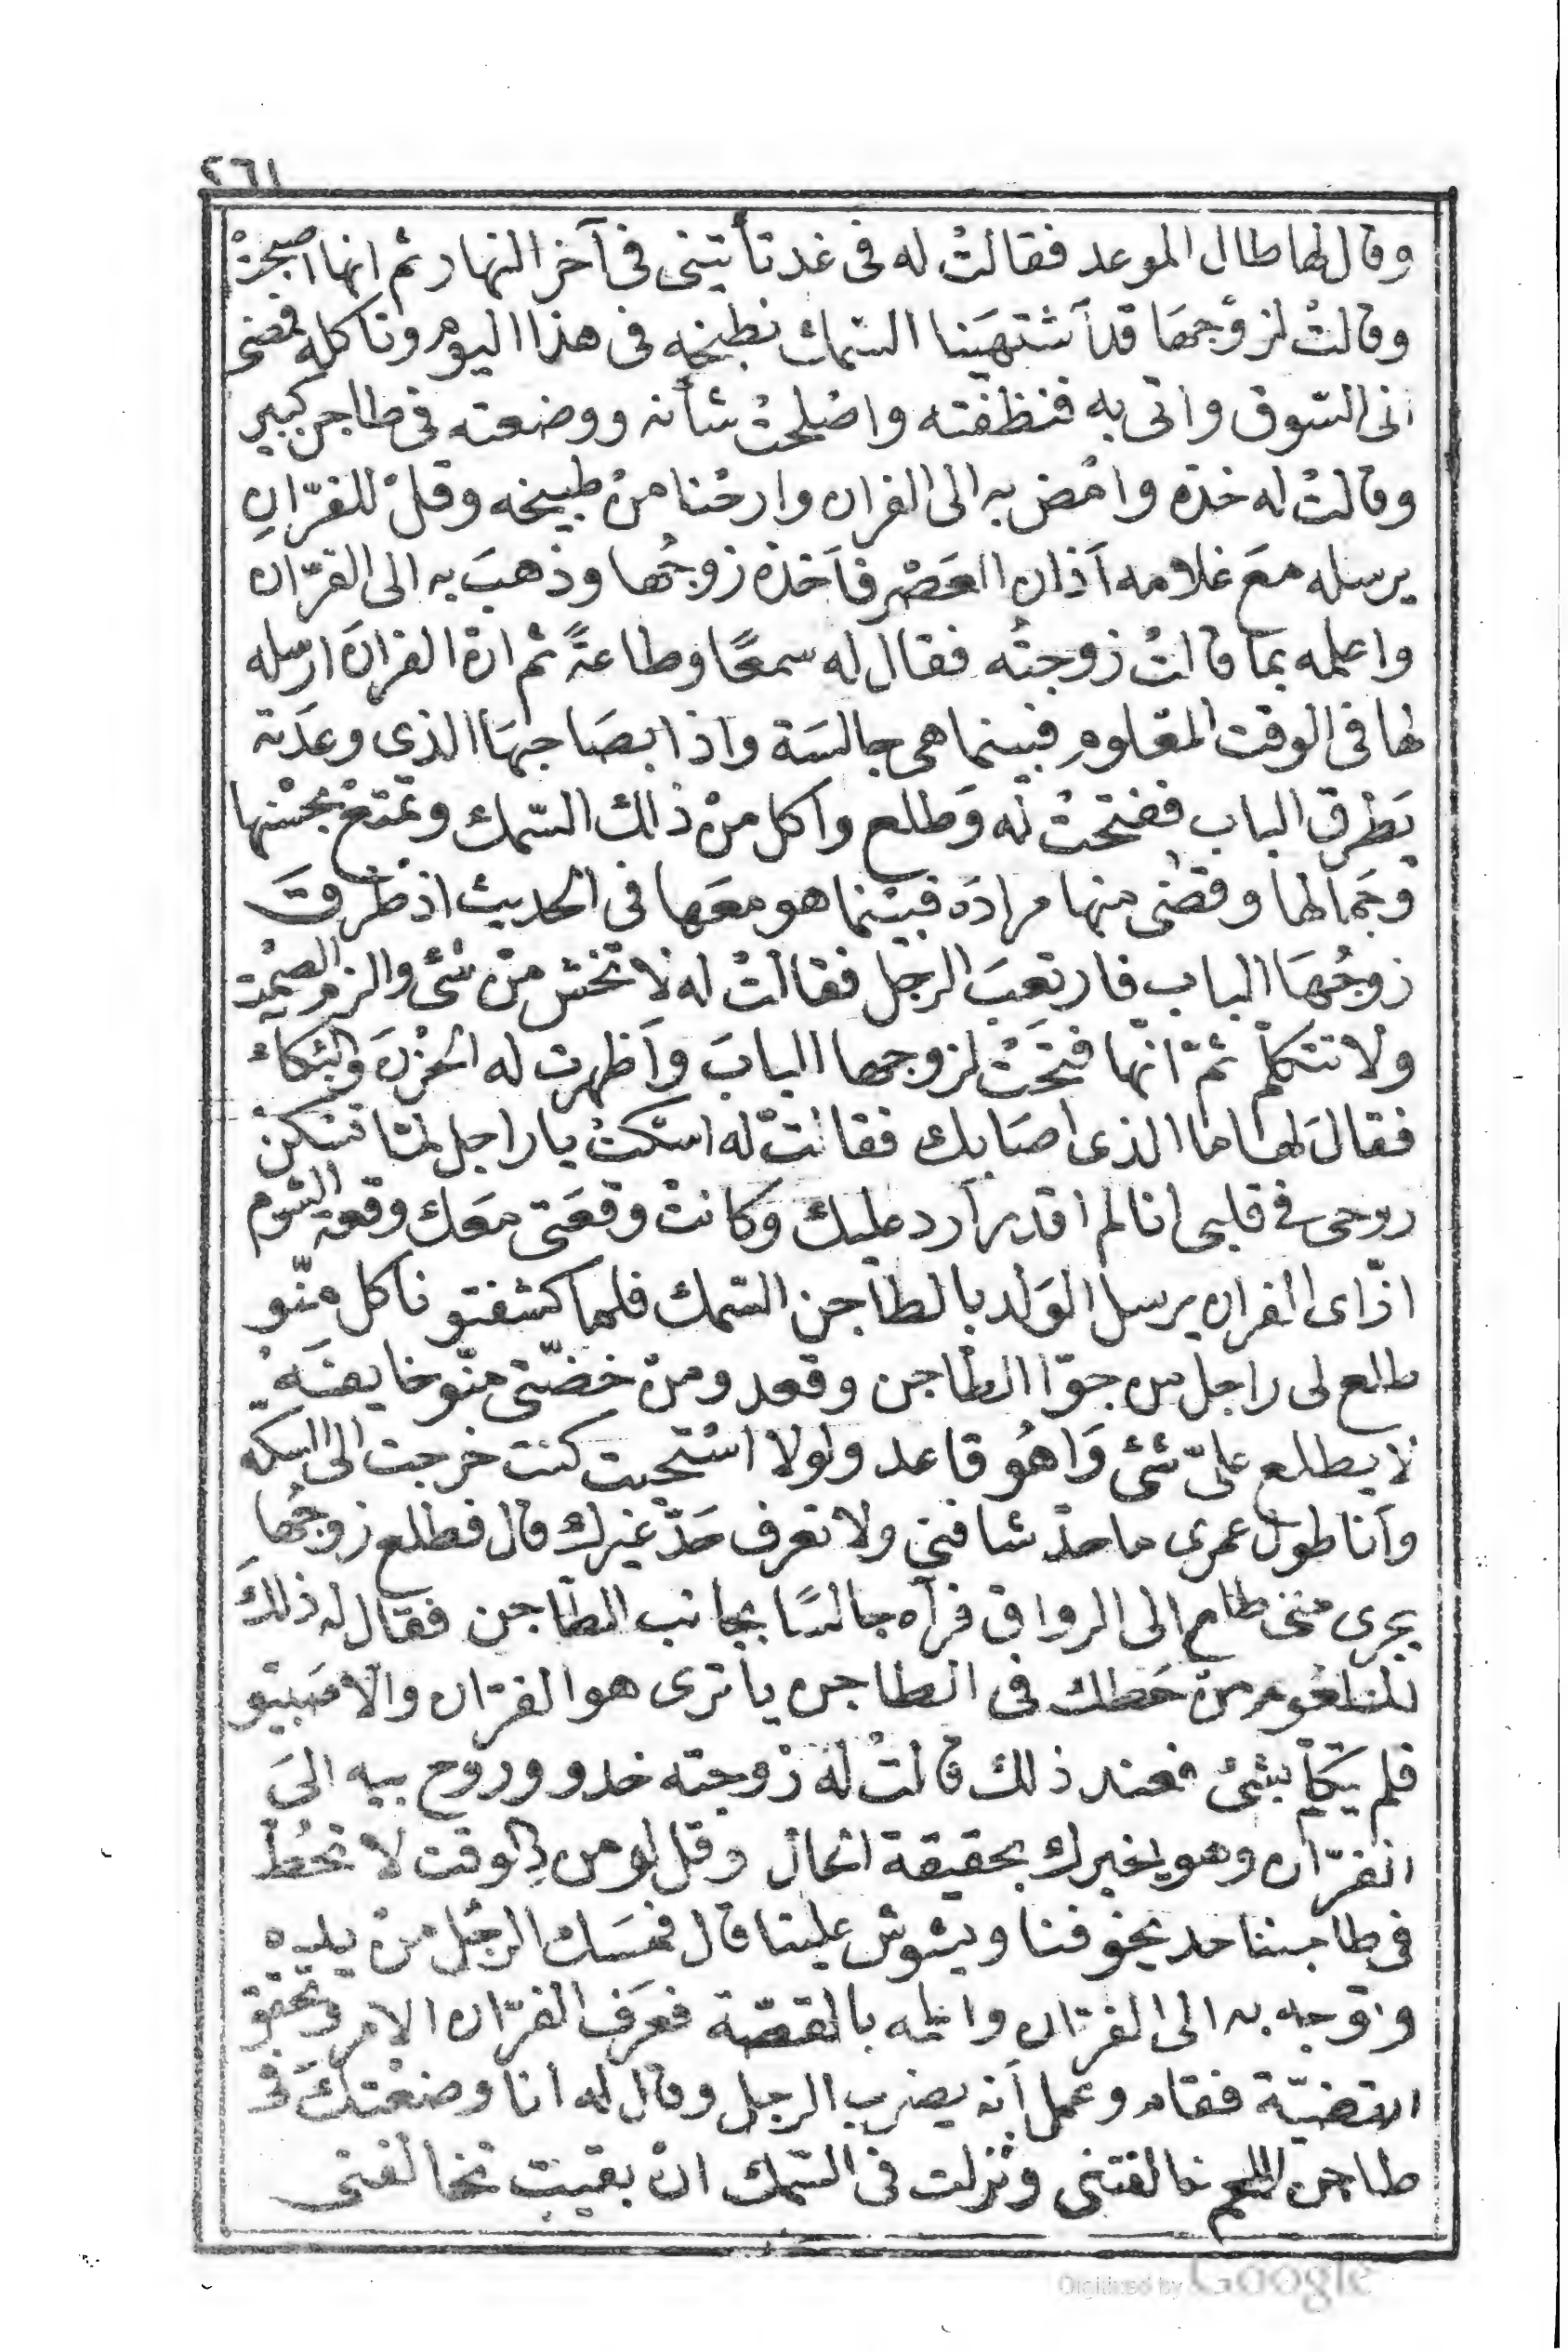 ٢٦١
وقال لها طال الموعد فقالتْ له فى غد تأتينى فى آخر النهار ثم انها اصبحتْ
وقالتْ لزوْجهَا قد آشتهَينا السّمك نطبخه فى هذا اليوم وناكله فمضى
الى السّوق واتى به فنظفته واصْلحتْ شأنه ووضعته فى طاجن كبير
وقالتْ له خدَه وامْض به الى الفران وارحْنا منْ طبيخه وقلْ للفرّانِ
يرسله معَ غلامه آذان العَصْر فآخذه زوجُها وذهبَ به الى الفرّان
واعلمه بما قالتْ زوجتُه فقال له سمعًا وطاعةً ثم انّ الفرانَ ارسله
لها فى الوقت المعَلوم فبينما هى جالسَة واذا بصَاحبهَا الذى وعدَته
يَطْرق الباب ففتحتْ له وَطلع وآكل منْ ذلك السّمك وتمّتعْ بحُسْنها
وجَمالها وقضَى منها مرادَه فبيْنما هو معَها فى الحديث اذْ طَرقَ
زوجُهَا الباب فارتعبَ الرجل فقالتْ له لا تخش منْ شئ والزم الصّمْت
ولا تتكلّمْ ثمّ انّها فتحَتْ لزوجها البابَ وآظهرت له الحُزْنَ والبُكاءْ
فقالَ لها ما الذى اصَابك فقالتْ له اسْكتْ يا راجل لمّا تسْكنْ
روحى فى قلبى انا لم اقدر آرد عليك وكانتْ وقعَتى معَك وقعة الشوم
ازّاى الفران يرسل الوَلد بالطاجن السّمك فلما كشفتو ناكل منّو
طلع لى راجل من جوّا الطاجن وقعد ومنْ خضّتى منّو خايفَه
لا يطلع علىّ شئ وَاهُو قاعد ولولا اسْتحيت كنت خرجت الى السكه
وآنا طول عمرى ما حدْ شافنى ولا نعرف حَدّ غيْرك قال فطلع زوجُها
يجرى متخطام الى الرواق فرآه جالسًا بجانب الطاجن فقال له ذلكَ
المغلغُوم منْ حَطك فى الطاجن يا ترى هو الفرّان والّا صَبيّو
فلم يتكلّم بشئ فعند ذلك قالتْ له زوجته خدو وروّح بيه الىَ
الفرّان وهو يخبرك بحقيقة الحال وقل لو من دِالوقت لا تحُطْ
فى طاجننا حد يخوفنا ويشوش علينا قال فمَسَك الرجُل منْ يده
وتوجه به الى الفرّان واعلمه بالقصّة فعرَف الفرّان الامر وتحقق
القضيّة فقام وعمل آنه يضرب الرجل وقال له انا وضعْتكَ فى
طاجن اللحم خالفتنى ونزلت فى السّمك انْ بقيت تخالفنى
Digitized by Google